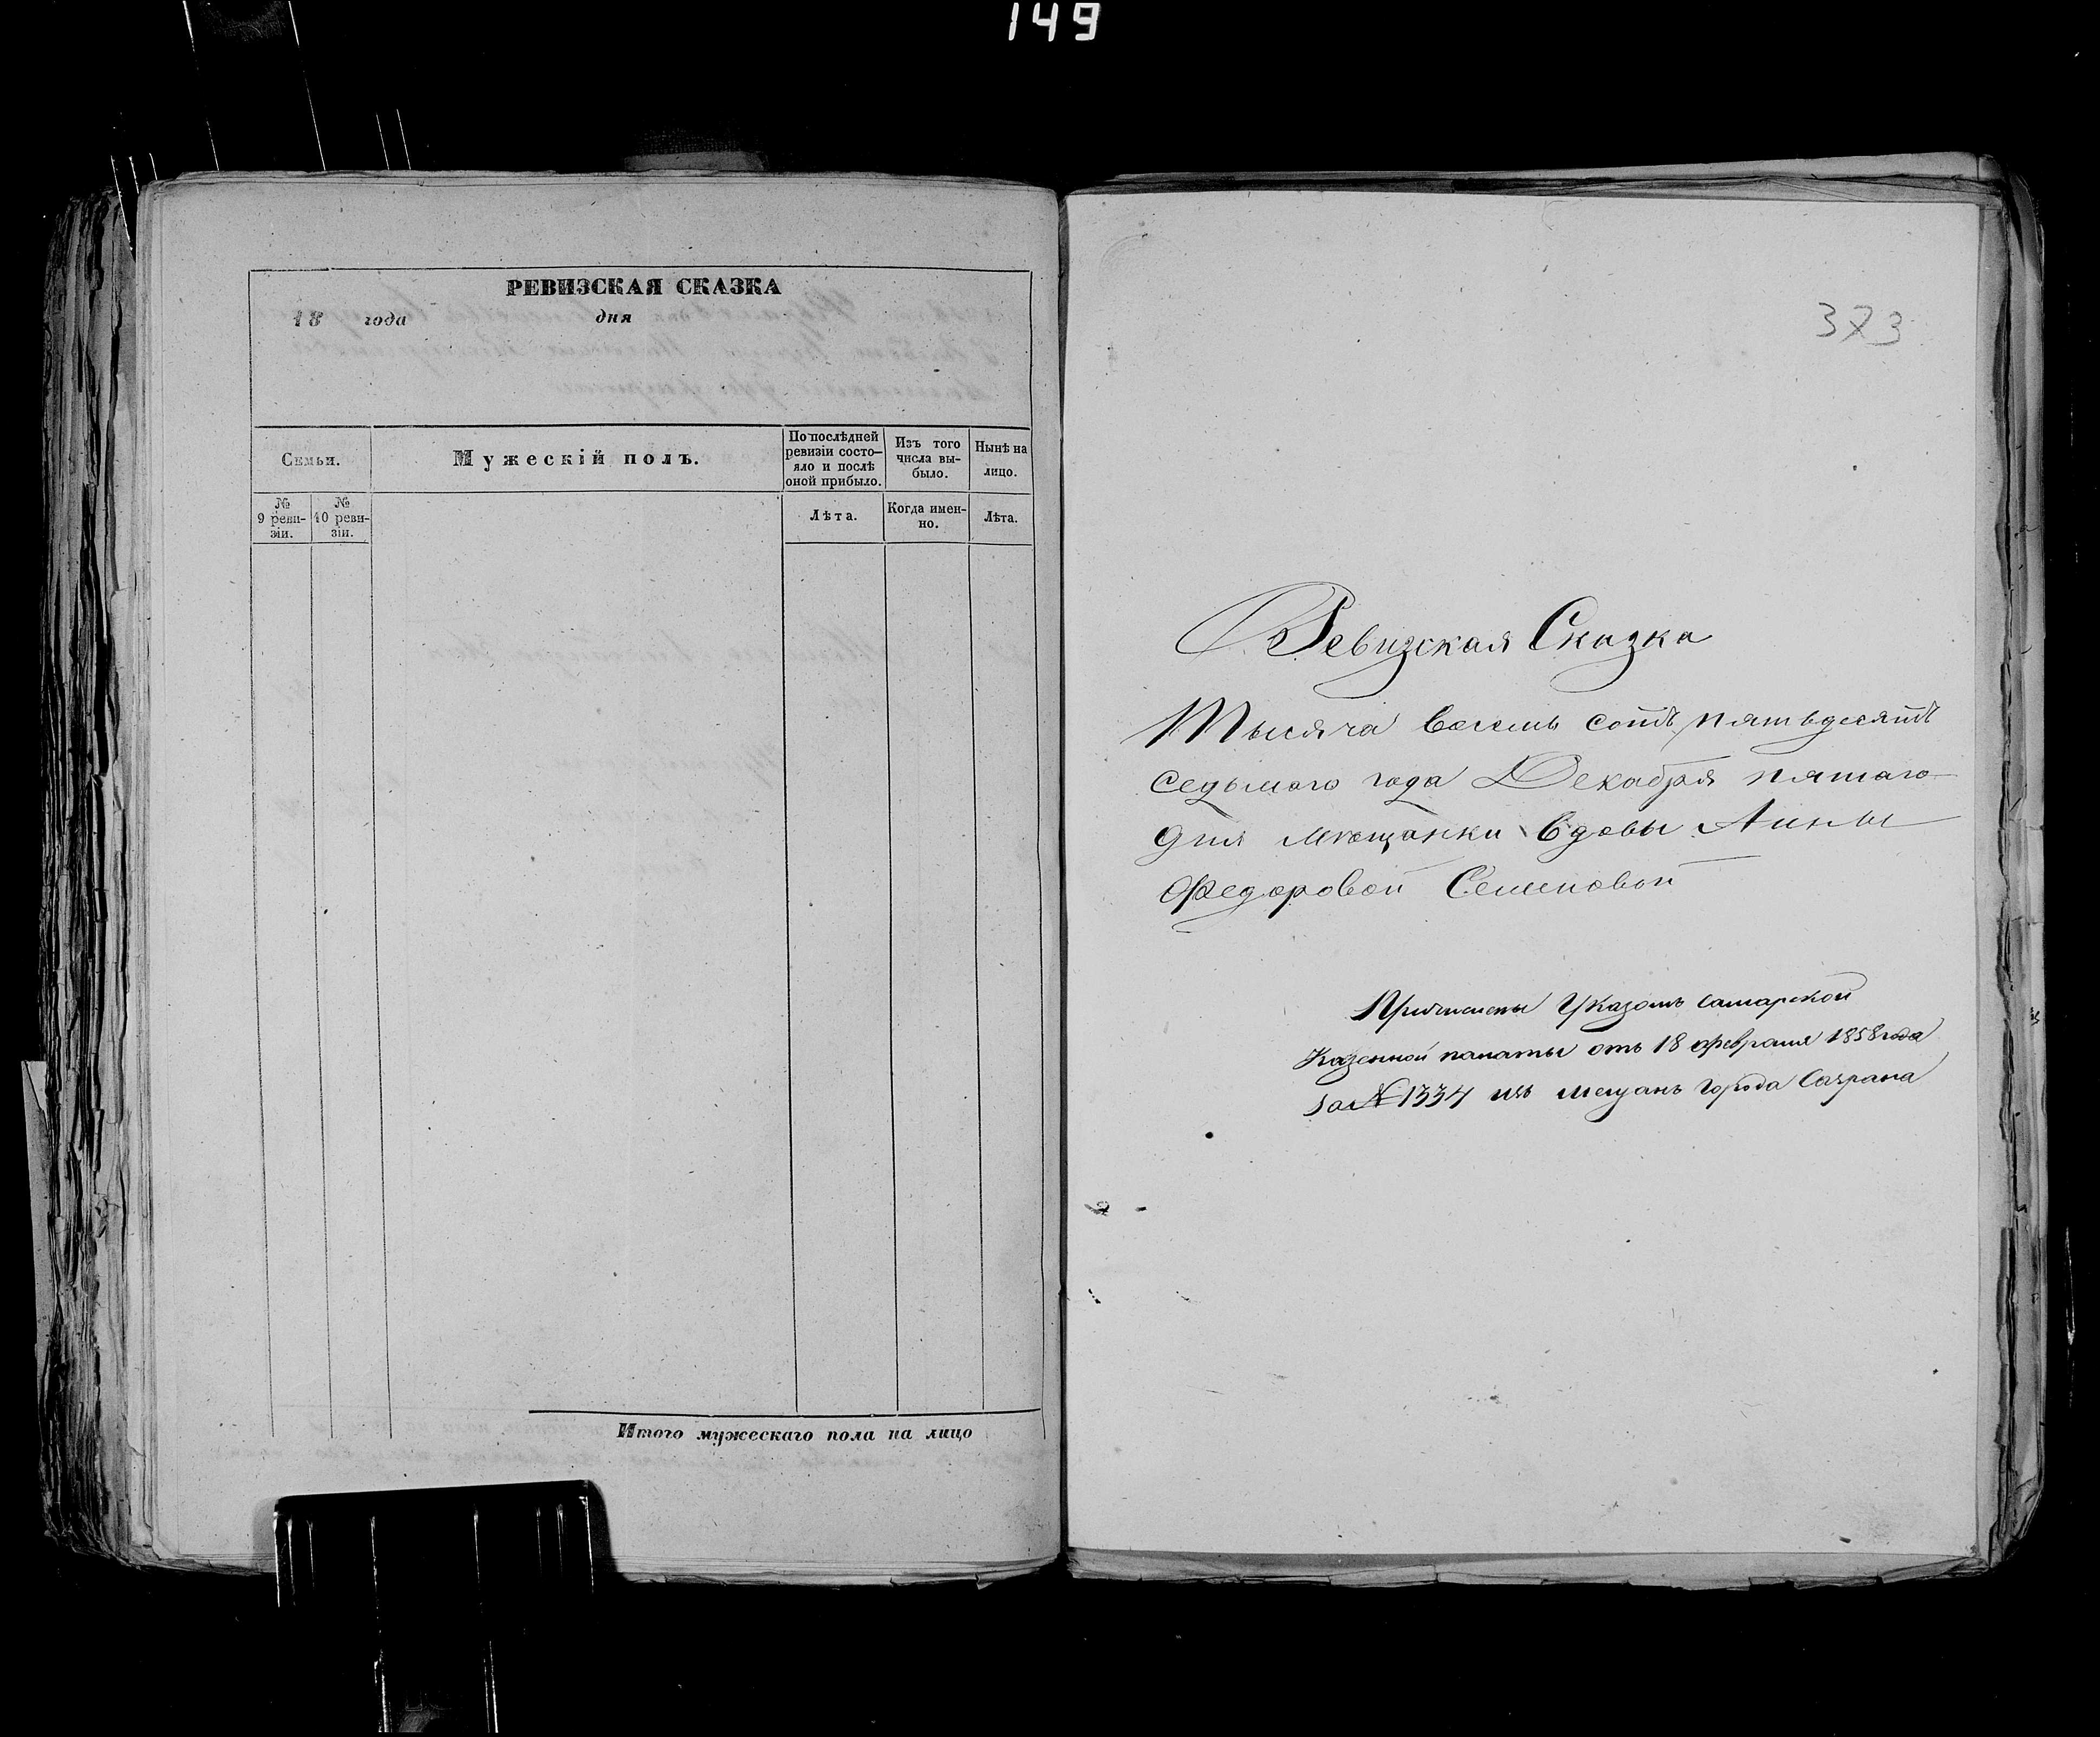 149
РЕВИЗСКАЯ СКАЗКА
18 года дня
Семьи.
Мужескій полъ.
По послѣдней
ревизіи состо-
яло и послѣ
оной прибыло.
Изъ того
числа вы-
было.
Нынѣ на
лицо.
№
9 реви-
зіи.
№
10 реви-
зіи.
Лѣта.
Когда имен-
но.
Лѣта.
Итого мужескаго пола на лицо
373
Ревизская Сказка
Тысяча восемь сотъ пятьдесятъ
седьмого года Декабря пятаго
дня мѣщанки вдовы Анны
Федоровой Семеновой
Причислены Указомъ Самарской
Казенной палаты отъ 18 февраля 1858 года
за № 1334 изъ мещанъ города